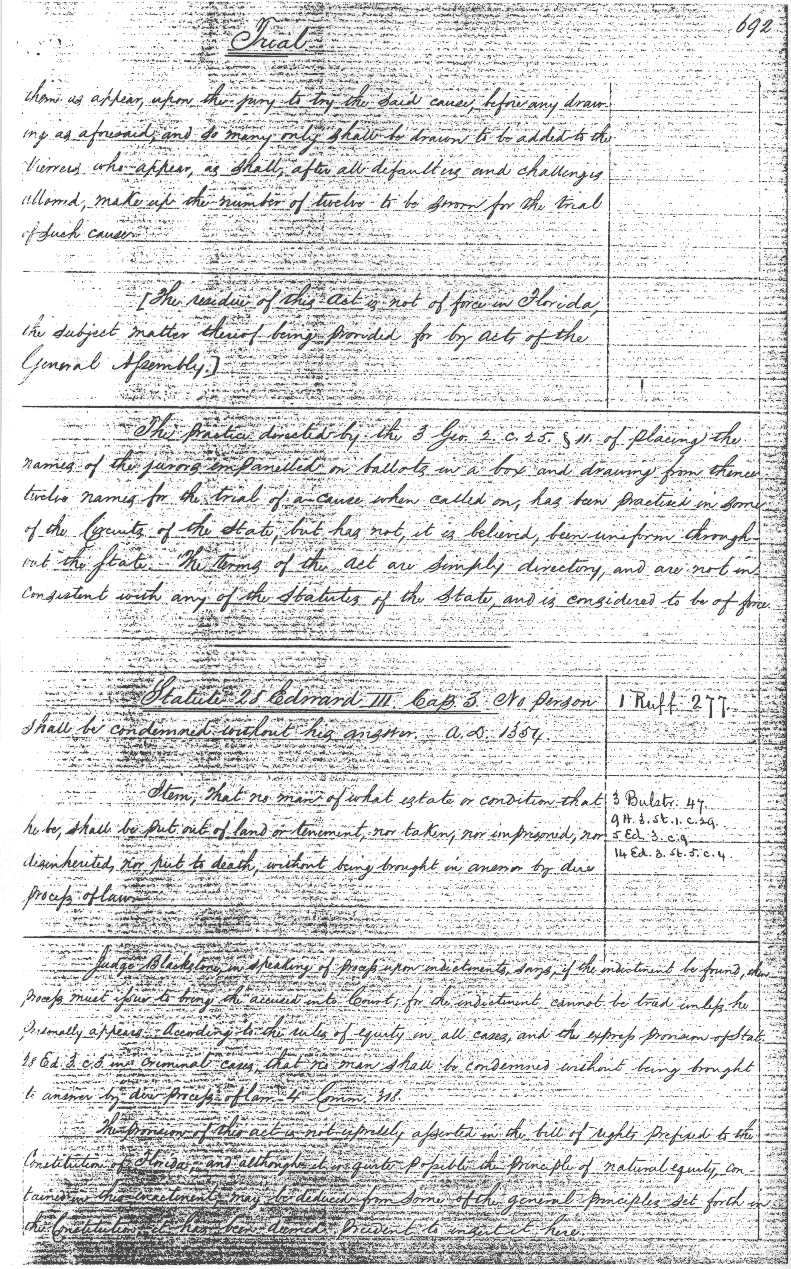 692
Trial
them as appear, upon the jury to try the said cause, before any draw-
ing as aforesaid, and so many only shall be drawn to be added to the
Viewers who appear, as shall, after all defaulters and challenges
allowed, make up the number of twelve to be sworn for the trial
of such cause.
[The residue of this Act is not of force in Florida,
the subject matter thereof being provided for by acts of the
General Assembly.]
The practice directed by the 3 Geo. 2. c. 25. § 11. of placing the
names of the jurors empanelled on ballots in a box and drawing from thence
twelve names for the trial of a cause when called on, has been practised in some
of the Circuits of the State, but has not, it is believed, been uniform through-
out the State. The terms of the Act are simply directory, and are not in
consistent with any of the Statutes of the State, and is considered to be of force.
Statute 28 Edward III. Cap 3. No person
shall be condemned without his answer. A.D. 1354.
1 Ruff. 277.
Item, that no man of what estate or condition that
he be, shall be put out of land or tenement, nor taken, nor imprisoned, nor
disinherited, nor put to death, without being brought in answer by due
process of law.
3 Bulstr. 47.
9 H. 3. St. 1. c. 29.
5 Ed. 3. c. 9.
14 Ed. 3. St. 5. c. 4
Judge Blackstone, in speaking of process upon indictments, says, if the indictment be found, then
process must issue to bring the accused into Court, for the indictment cannot be tried unless he
personally appears. According to the rules of equity in all cases, and the express provision of Stat.
28 Ed. 3. c. 3. in criminal cases, that no man shall be condemned without being brought
to answer by due process of law. 4 Comm. 318.
The provision of this act is not expressly asserted in the bill of rights prefixed to the
Constitution of Florida, and although it is quite possible the principle of natural equity, con-
tained in this enactment may be deduced from some of the general principles set forth in
the Constitution it has been deemed prudent to insert it here.